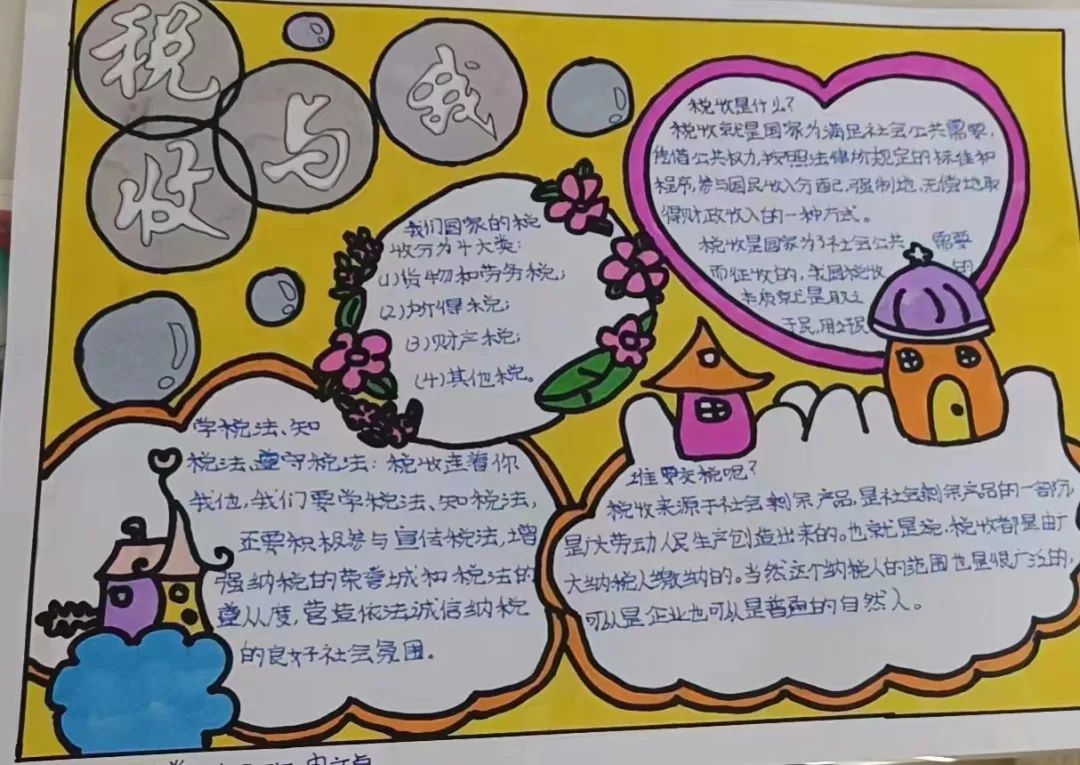 税收与我
税收是什么?
税收就是国家为满足社会公共需要,
凭借公共权力,按照法律所规定的标准和
程序,参与国民收入分配,强制地、无偿地取
得财政收入的一种方式。
税收是国家为了社会公共需要
而征收的,我国税收的
本质就是取之
于民,用之民
我们国家的税
收分为十大类:
(1)货物和劳务税;
(2)所得税;
(3)财产税;
(4)其他税。
学税法、知
税法、遵守税法:税收连着你
我他,我们要学税法、知税法,
还要积极参与宣传税法,增
强纳税的荣誉城和税法的
遵从度,营造依法诚信纳税
的良好社会氛围.
谁要交税呢?
税收来源于社会剩余产品,是社会剩余产品的一部份,
是广大劳动人民生产创造出来的。也就是说,税收都是由广
大纳税人缴纳的。当然这个纳税人的范围也是很广泛的,
可以是企业也可以是普通的自然人。